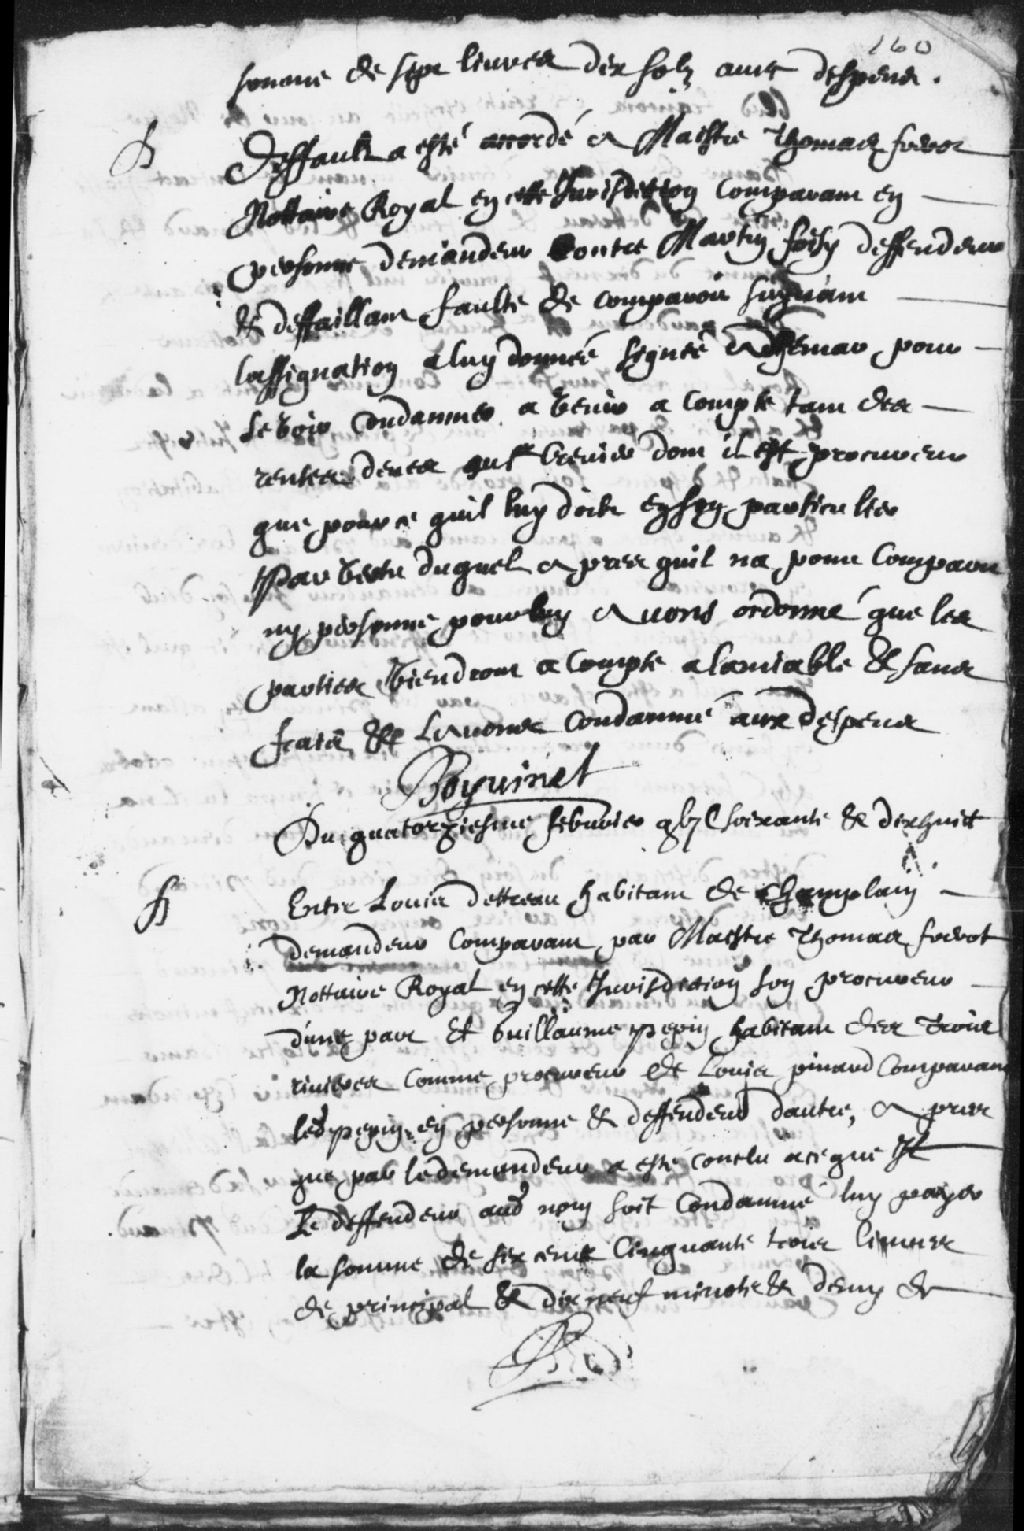 160
somme de sept livres dix solz avec despens.
Deffault a esté accordé a Maistre Thomas frerot
Nottaire Royal en cette Jurisdiction Comparant en
personne demandeur Contre Martin foisy deffendeur
& deffaillant faulte de comparoir suyvant
lassignation a luy donnée signée Ademar pour
se voir Condamner a venir a compte tant des
rentes deues au Sr Crevier dont il est procureur
que pour ce quil luy doibt en son particulier
Par vertu duquel apres quil na point Comparu
ny personne pour luy Avons ordonné que les
parties viendront a Compte a lamiable & sans
frais & Lavons Condamné aux despens
Boyvinet
Du quatorziesme febvrier gbjC soixante & dixhuict
Entre Louis dettreau habitant de Champlain
demandeur Comparant par Maistre Thomas frerot
Nottaire Royal en cette Jurisdiction son procureur
dune part Et Guillaume pepin habitant des Trois
rivieres Comme procureur de Louis pinard Comparant
led pepin en personne & deffendeur dautre, apres
que par le demandeur a esté conclu a ce que
Le deffendeur aud nom soit Condamné luy payer
la somme de six cens Cinquante trois livres
de principal & dix neuf minots & demy de